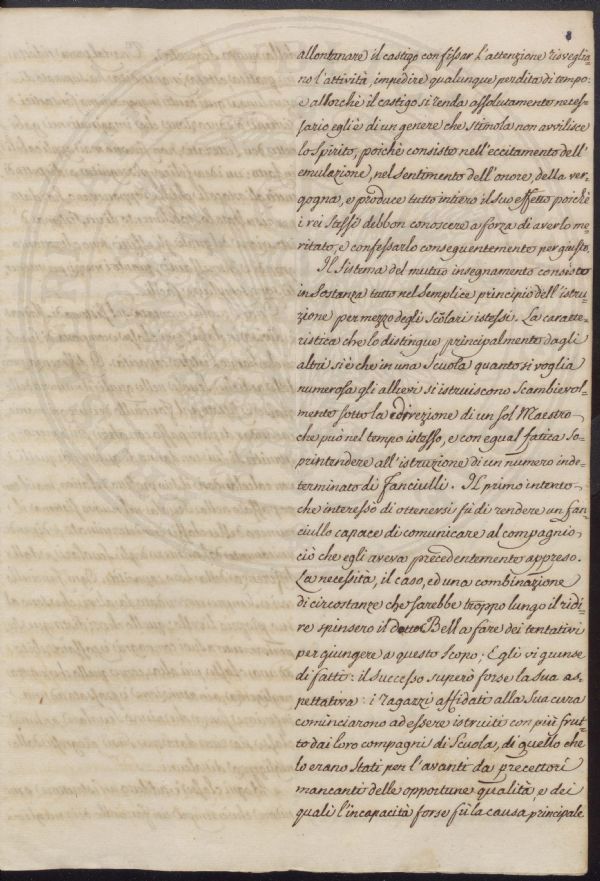 allontanare il castigo con fissar l'attenzione risveglia
no l'attività, impedire qualunque perdita di tempo:
e allorchè il castigo si renda assolutamente neces-
sario egli è di un genere che stimola non avvilisce
lo Spirito, poichè consiste nell'eccitamento dell'
emulazione, nel sentimento dell'onore, della ver-
gogna, e produce tutto intero il suo effetto poichè
i rei stessi debbon conoscere a forza di averlo me-
ritato, e confessarlo conseguentemente per giusto.
Il Sistema del mutuo insegnamento consiste
in Sostanza tutto nel Semplice principio dell'istru-
zione per mezzo degli Scolari istessi. La caratte-
ristica che lo distingue principalmente dagli
altri si è che in una Scuola quanto si voglia
numerosa gli allievi si istruiscono Scambievol-
mente sotto la direzione di un sol Maestro
che può nel tempo istesso, e con egual fatica So-
printendere all'istruzione di un numero inde-
terminato di Fanciulli. Il primo intento
che interessò di ottenersi fù di rendere un fan-
ciullo capace di comunicare al compagnio
ciò che egli aveva precedentemente appreso.
La necessità, il caso, ed una combinazione
di circostanze che sarebbe troppo lungo il ridi-
re spinsero il Bell a fare dei tentativi
per giungere a questo Scopo; Egli vi giunse
di fatti: il successo superò forse la sua as-
pettativa: i ragazzi affidati alla Sua cura
cominciarono ad essere istruiti con più frut-
to dai loro compagni di Scuola, di quello che
lo erano Stati per l'avanti da precettori
mancanti delle opportune qualità, e dei
quali l'incapacità forse fù la causa principale